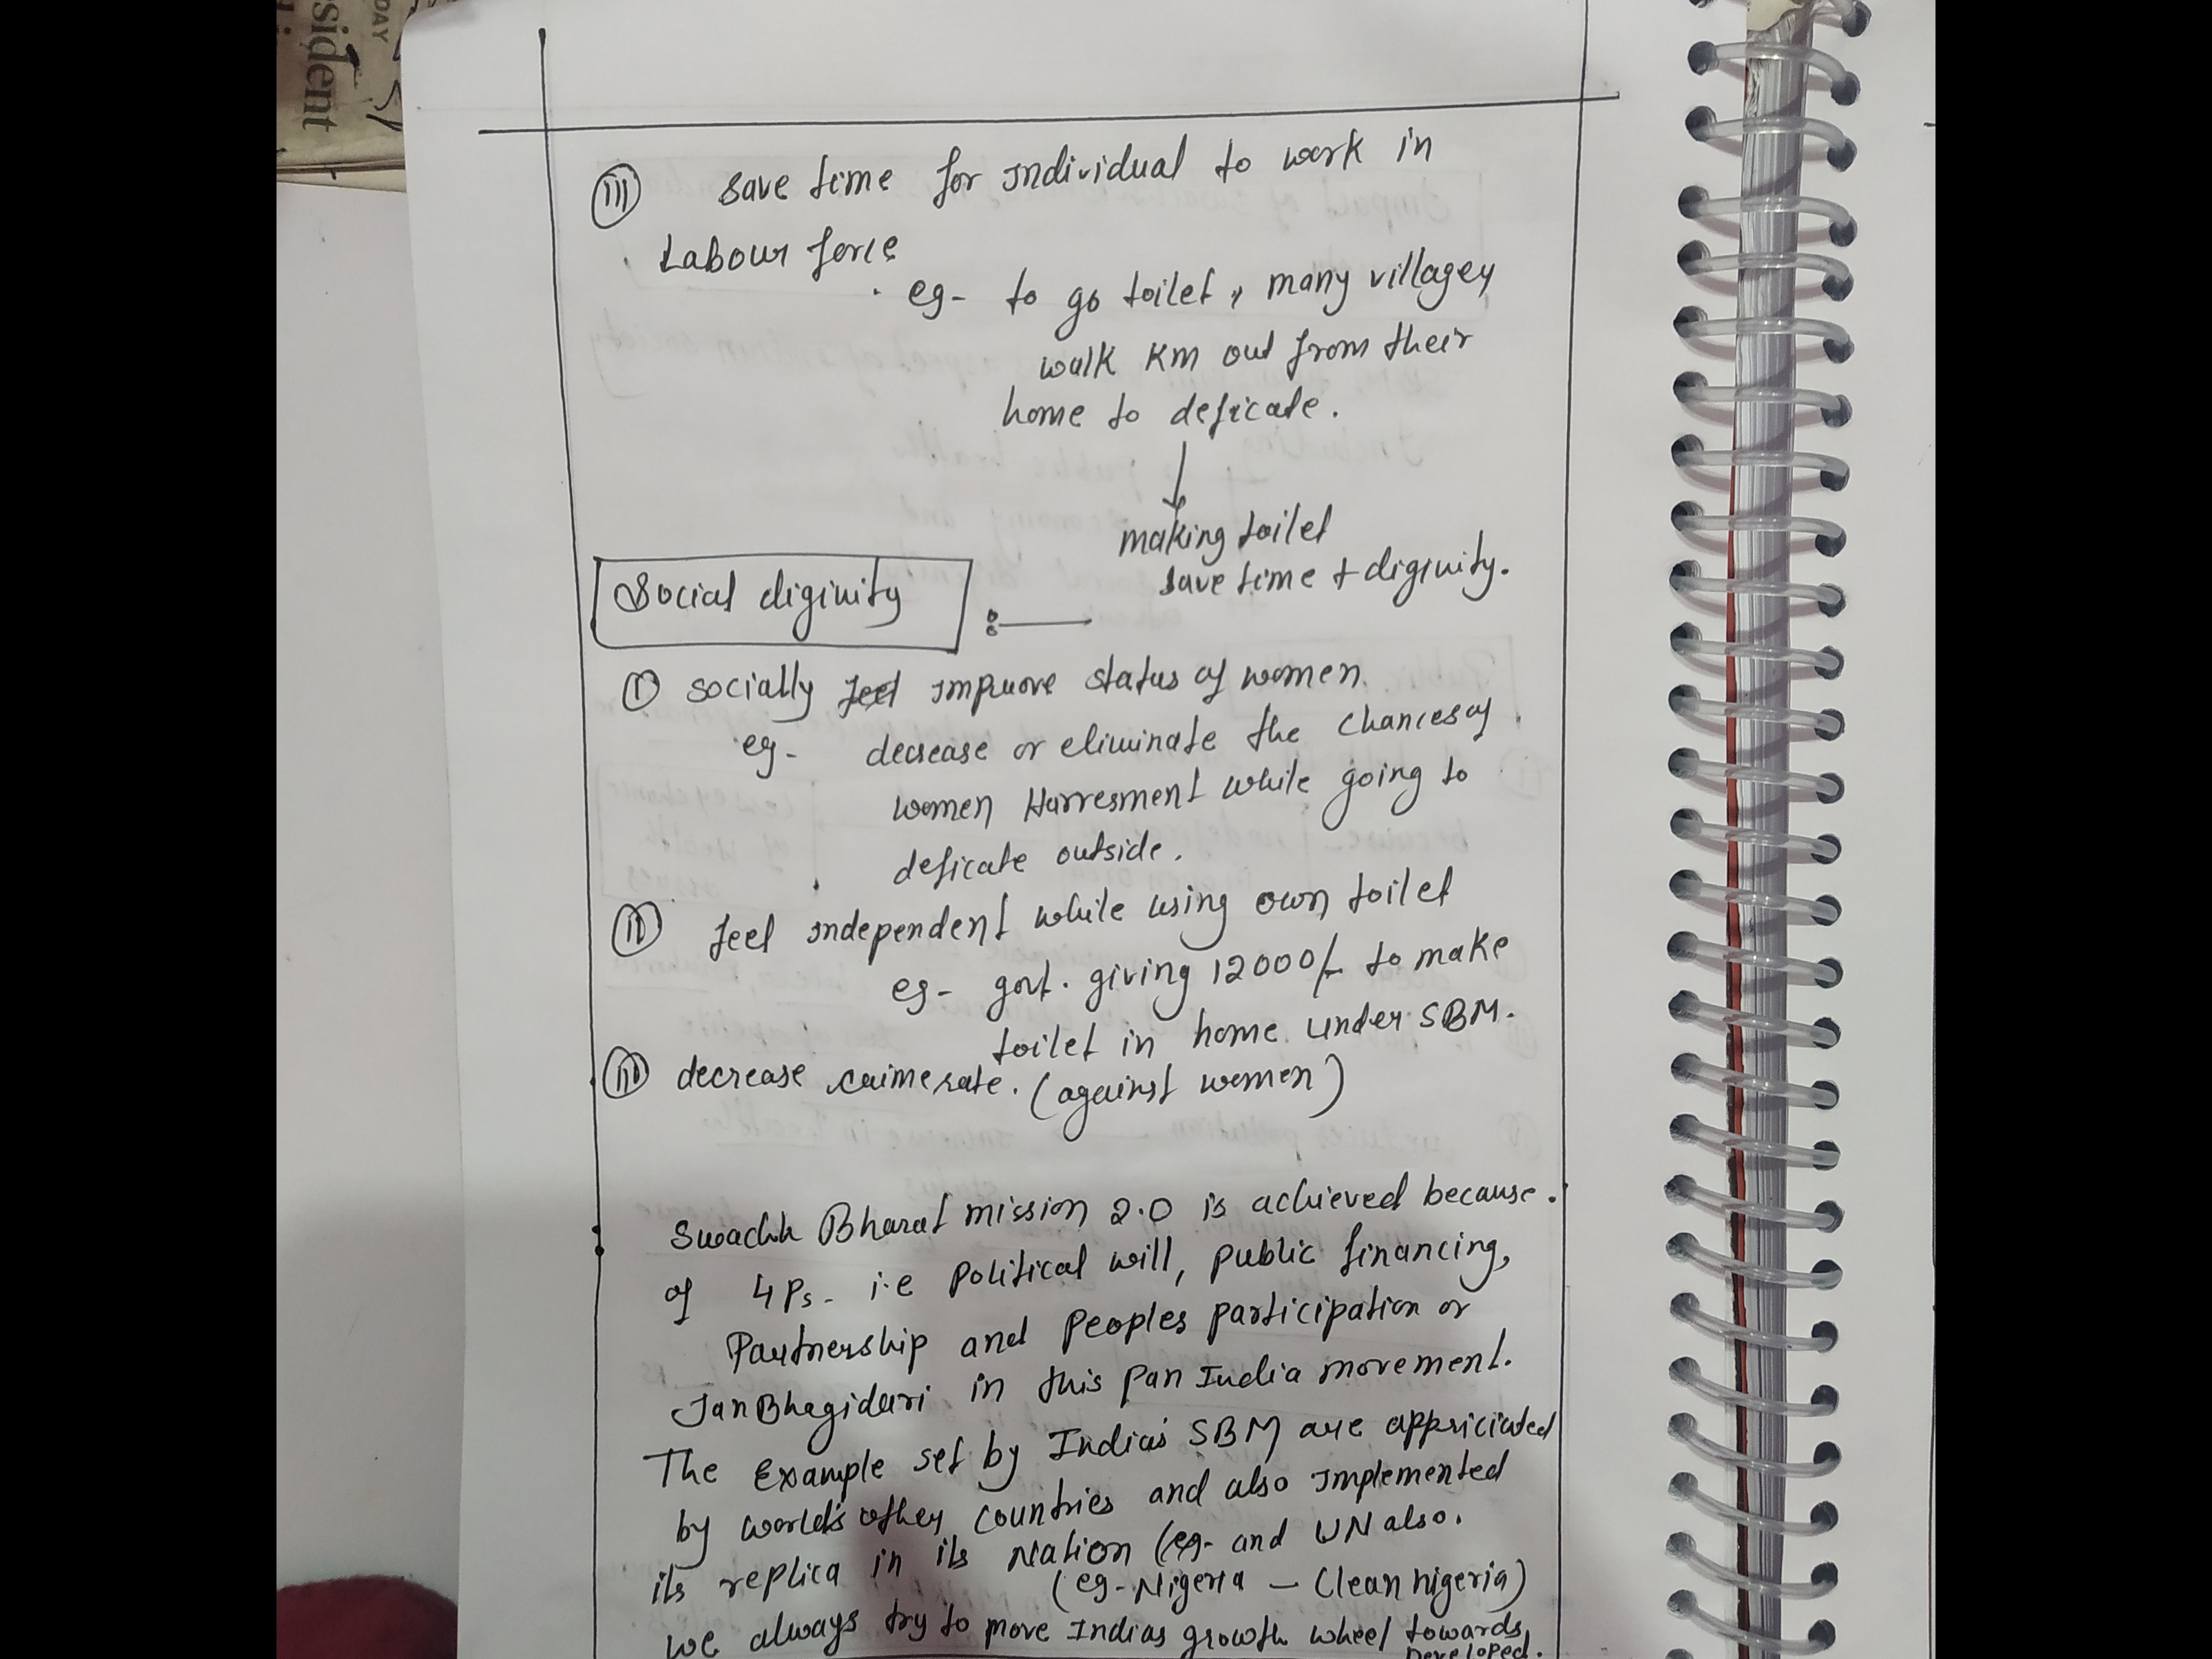 sident
DAY
(III) save time for individual to work in
Labour force
eg- to go toilet, many villagey
walk KM out from their
home to deficate.
↓
making toilet
save time + diginity.
Social diginity :—
(I) socially feel improve status of women.
eg- decrease or eliminate the chances of
women Harresment while going to
deficate outside.
(II) feel independent while using own toilet
eg- govt. giving 12000/- to make
toilet in home under SBM.
(III) decrease crime rate. (against women)
Swachh Bharat mission 2.0 is achieved because
of 4Ps - i.e Political will, public financing,
Partnership and Peoples participation or
JanBhagidari in this pan India movement.
The Example set by India's SBM are appriciated
by world's other countries and also implemented
its replica in its Nation (eg- and UN also.
(eg- Nigeria – Clean nigeria)
we always try to move Indias growth wheel towards
Developed.